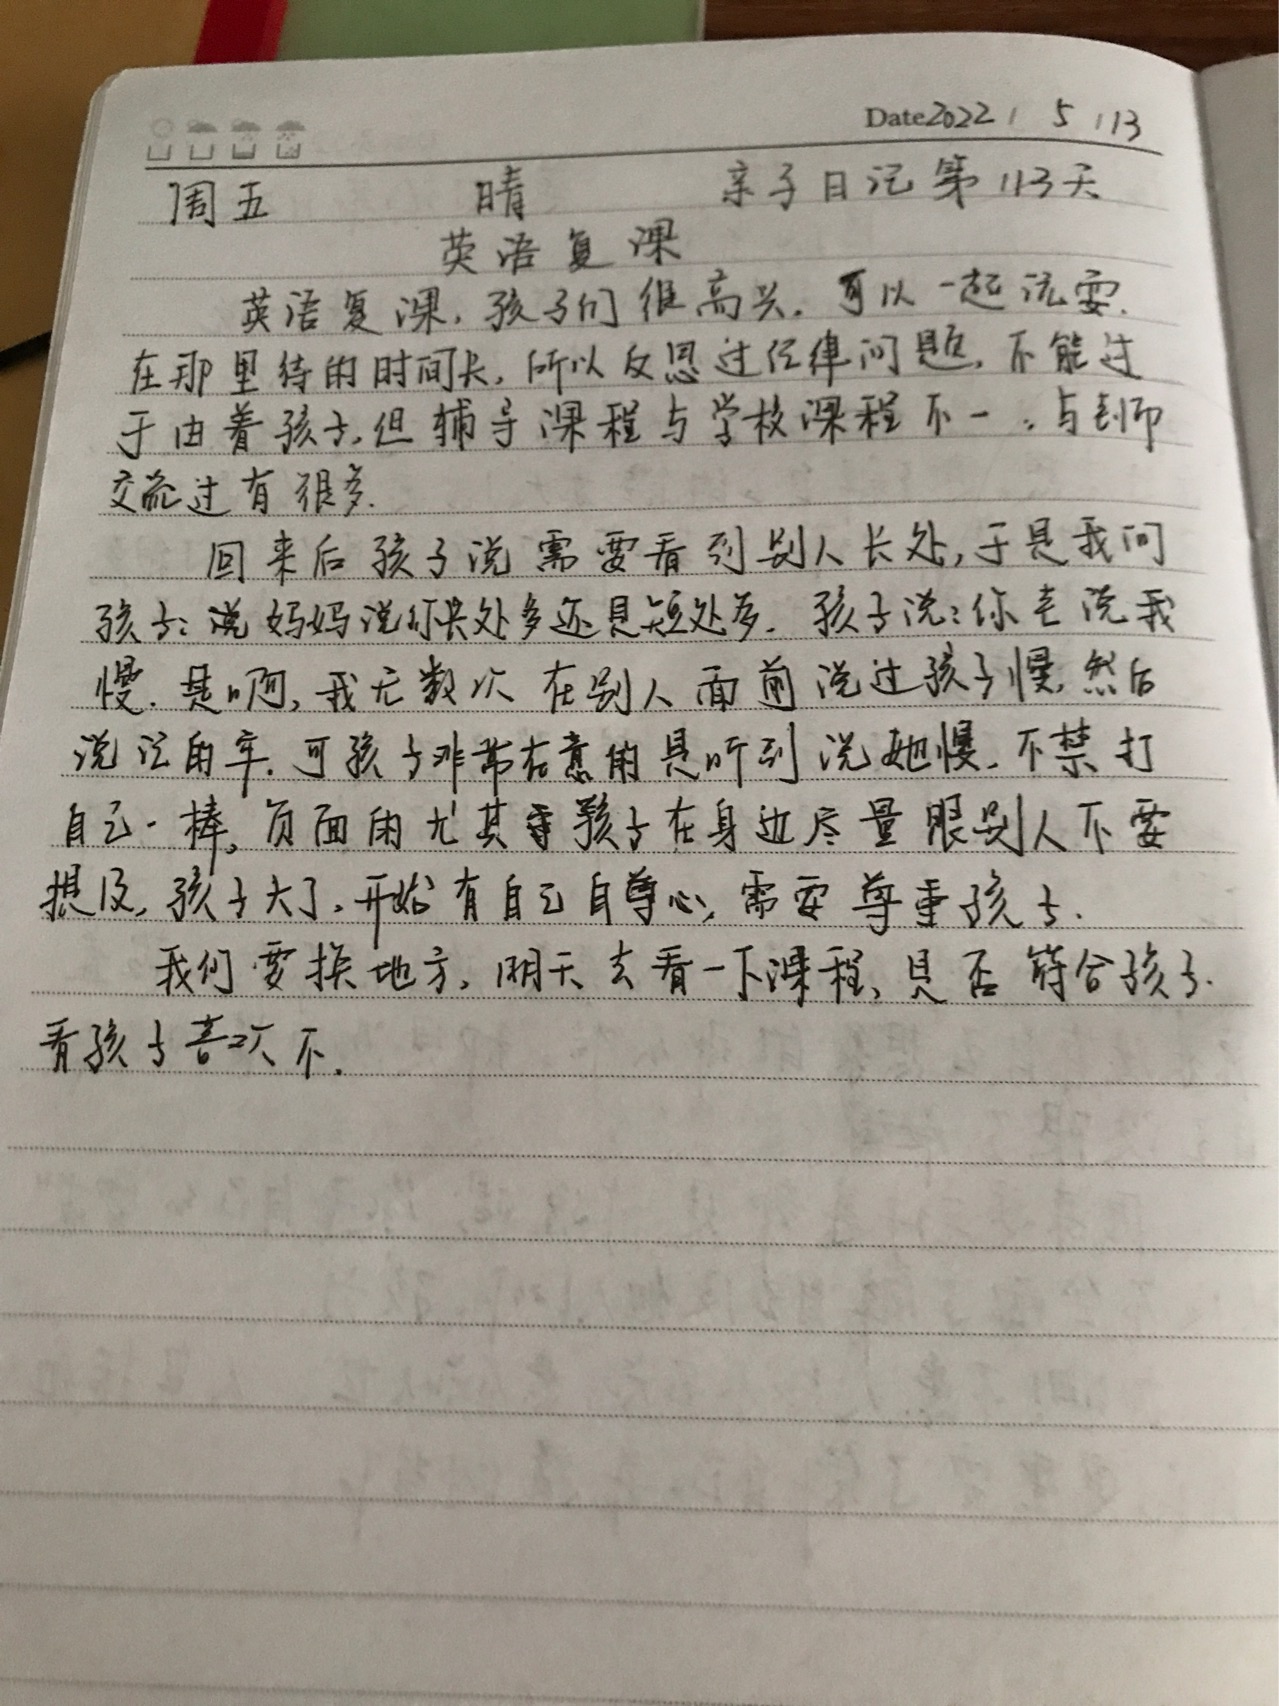 Date 2022 / 5 / 13
周五 晴 亲子日记第113天
英语复课
英语复课,孩子们很高兴,可以一起玩耍.
在那里待的时间长,所以反思过纪律问题,不能过
于由着孩子,但辅导课程与学校课程不一,与老师
交流过有很多.
回来后孩子说需要看到别人长处,于是我问
孩子:说妈妈说你长处多还是短处多.孩子说:你老说我
慢.是啊,我无数次在别人面前说过孩子慢,然后
说记的牢.可孩子非常在意的是听到说她慢.不禁打
自己一棒,负面的尤其孩子在身边尽量跟别人不要
提及,孩子大了,开始有自己自尊心,需要尊重孩子.
我们要换地方,明天去看一下课程,是否符合孩子.
看孩子喜欢不.